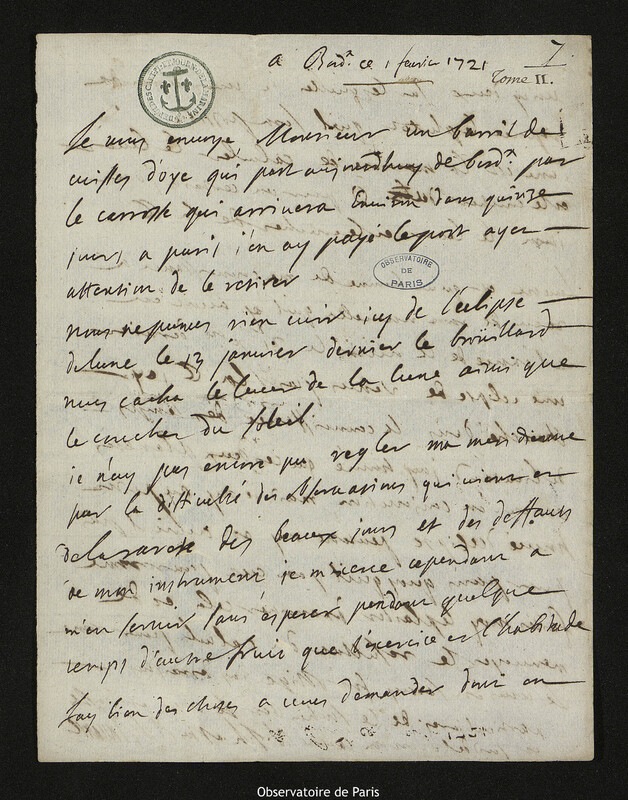 a Bord.x ce 1 fevrier 1721
7
Tome II.
Je vous envoye Monsieur un barril de
cuisses d'oye qui part aujourdhuy de bord.x par
le carrosse qui arrivera Environ dans quinze
jours a paris j'en ay payé le port ayez
attention de le retirer
OBSERVATOIRE
DE
PARIS
nous ne pumes rien voir icy de l'eclipse
de lune le 13 janvier dernier le broüillard
nous cacha le lever de la lune ainsi que
le coucher du soleil
je n'ay pas encore pu regler ma meridienne
par la difficulté des observations qui vient et
de la rareté des beaux jours et des deffauts
de mon instrument je m'exerce cependant a
m'en servir sans esperer pendant quelque
temps d'autre fruit que l'exercice et l'habitude
j'ay bien des choses a vous demander dont on
Observatoire de Paris